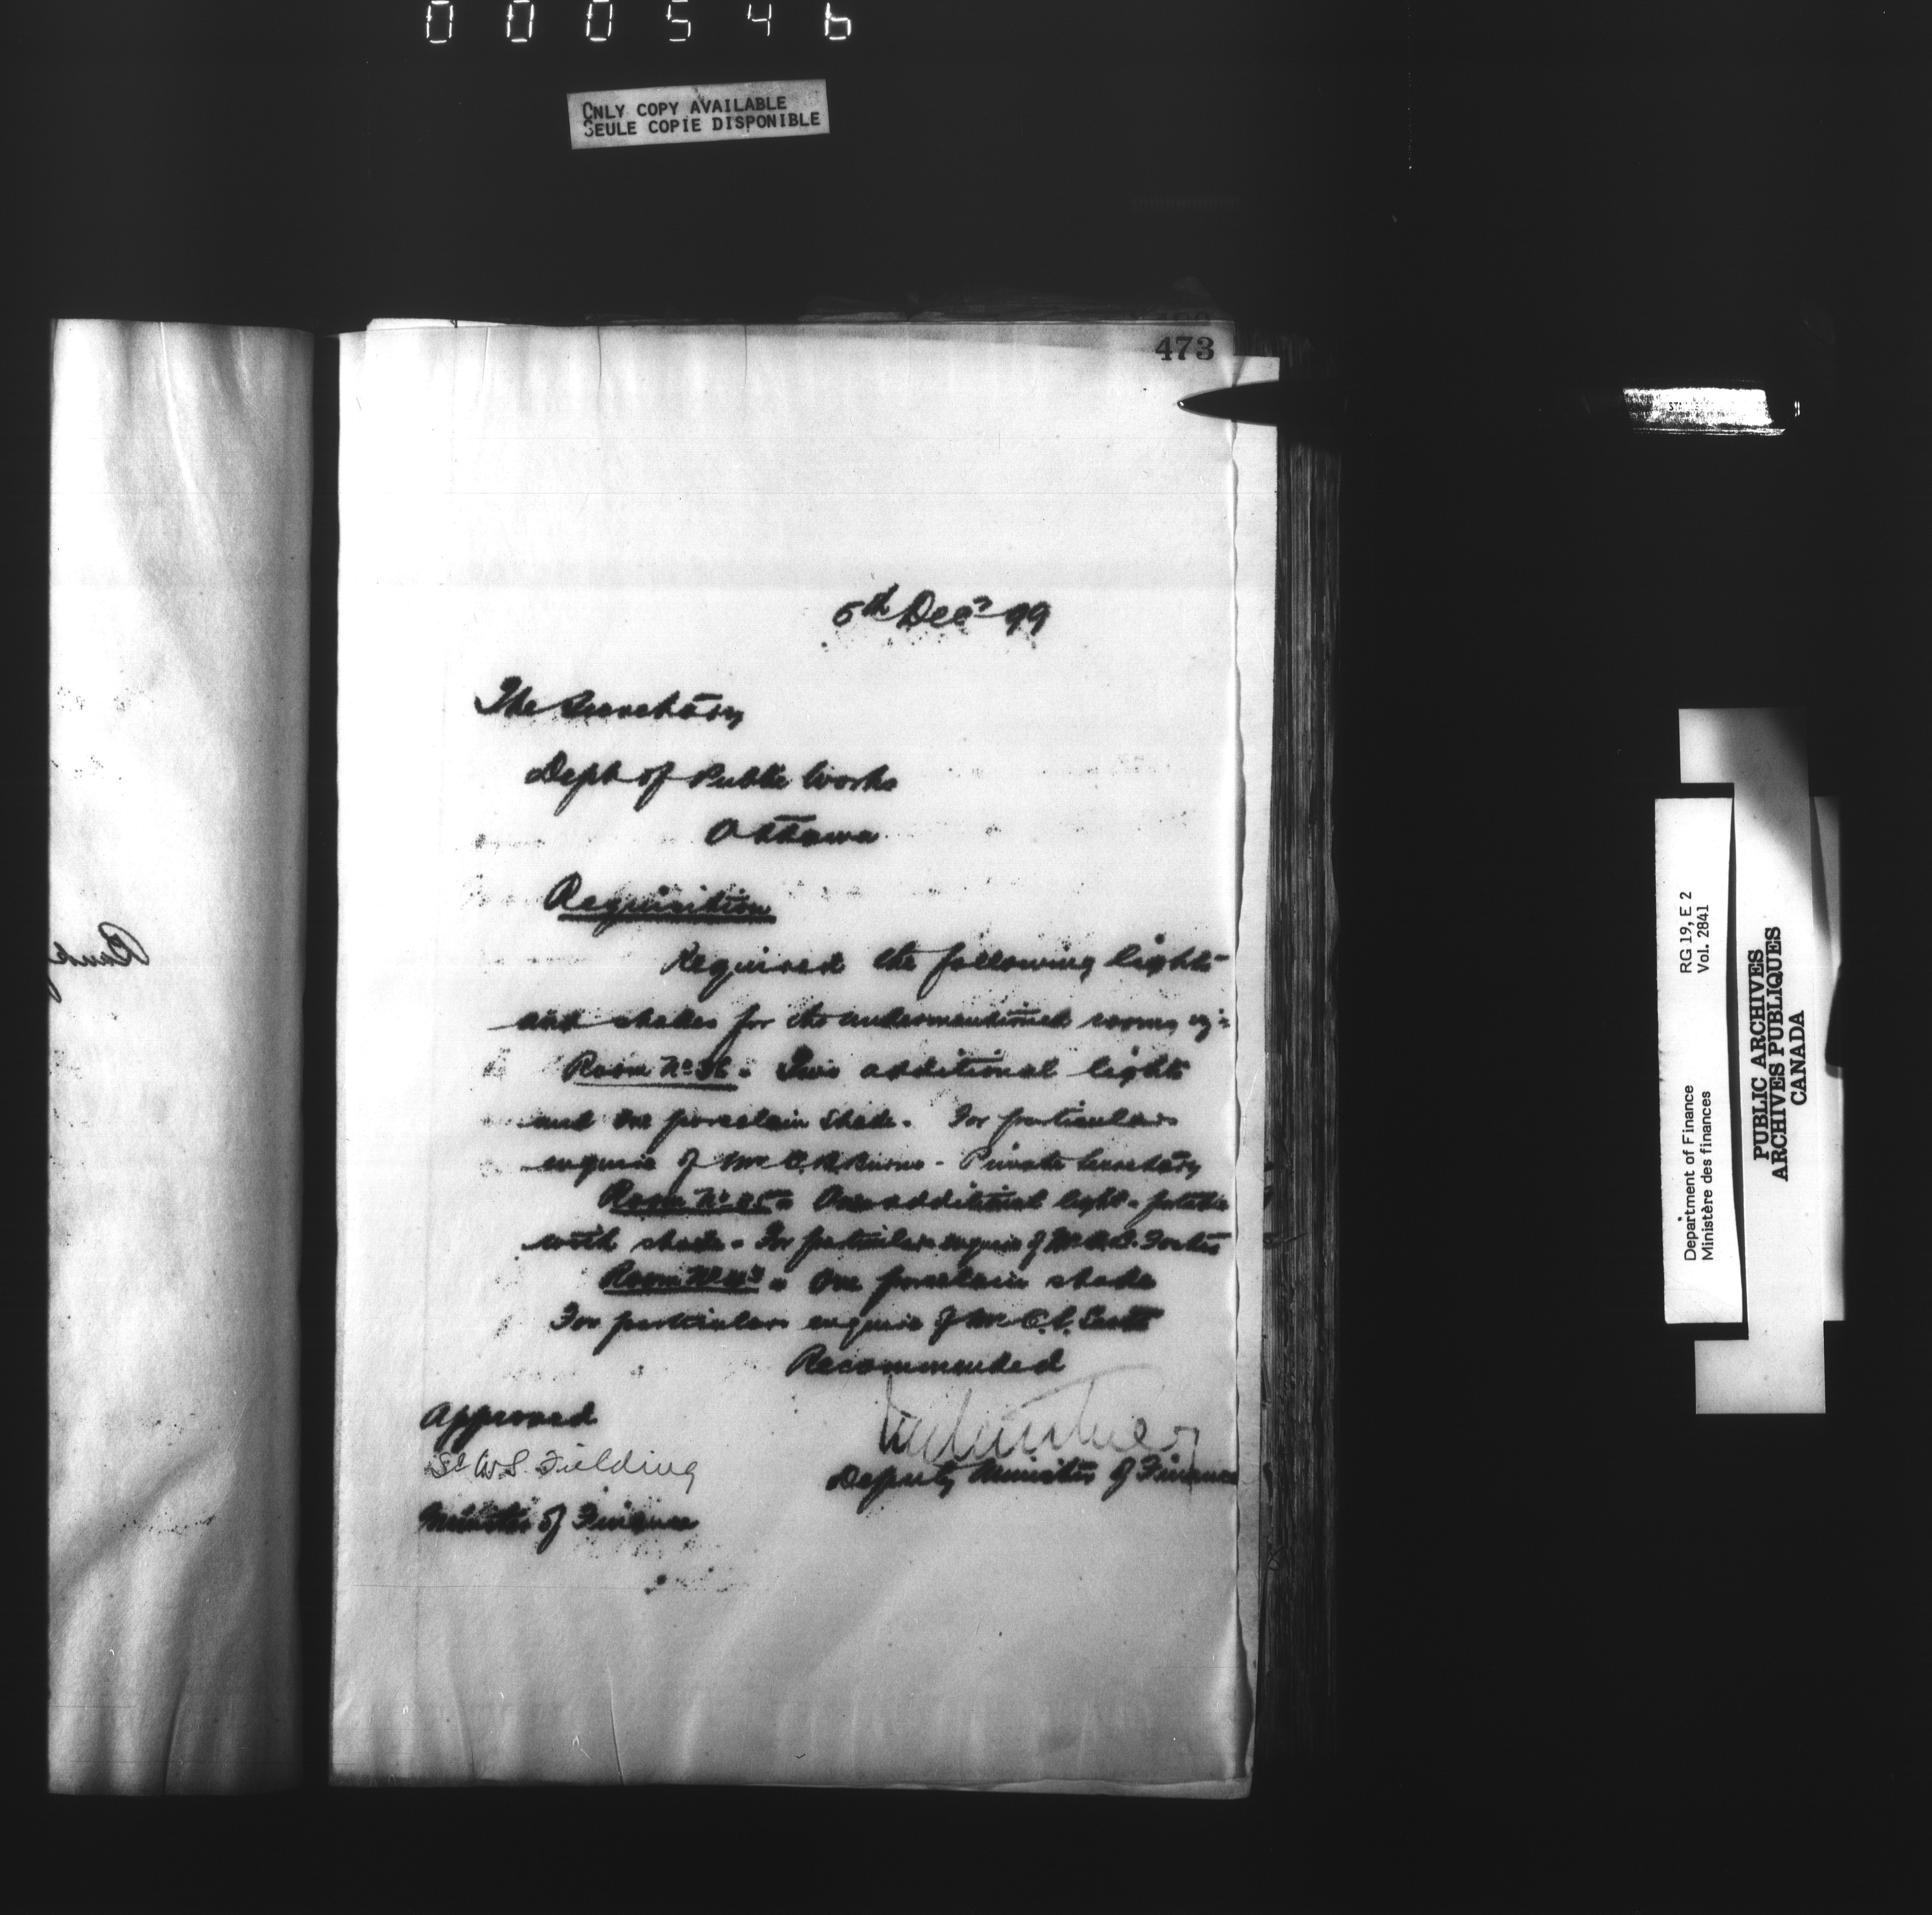 000546
ONLY COPY AVAILABLE
SEULE COPIE DISPONIBLE
473
5th Decr 99
The Secretary
Dept of Public Works
Ottawa
Requisition
Required the following lights
and shades for the undermentioned rooms vz:
Room No. Two additional lights
and one porcelain shade. For particulars
enquire of Mr Private Secretary
Room No. One additional light
with shade. For particulars enquire of Mr
Room No. One porcelain shade
For particulars enquire of Mr
Recommended
Approved
Sd W.S. Fielding
Deputy Minister of Finance
Minister of Finance
Bank
RG 19, E 2
Vol. 2841
Department of Finance
Ministère des finances
PUBLIC ARCHIVES
ARCHIVES PUBLIQUES
CANADA